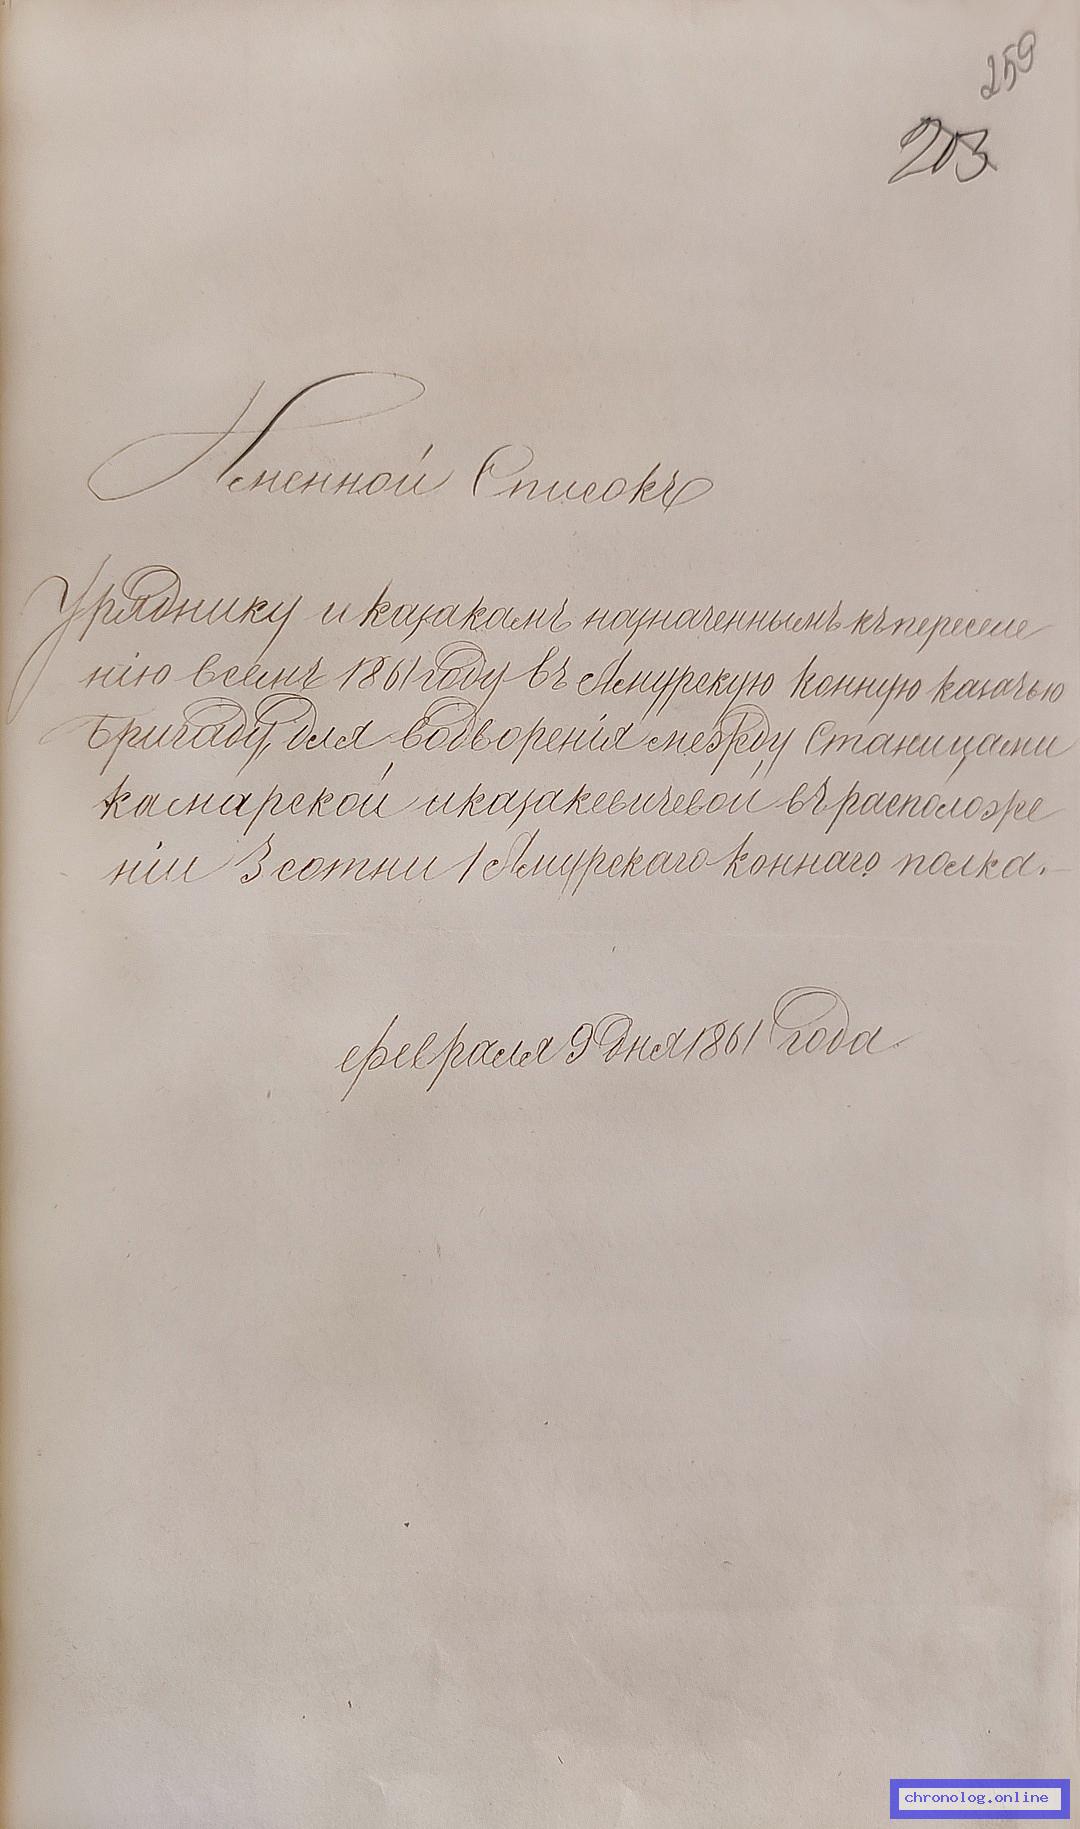 259
203
Именной Списокъ
Уряднику и казакамъ назначеннымъ къ переселе
нію в семъ 1861 году въ Амурскую конную казачью
бригаду, для водворенія между Станицами
камарской и казакевичевой въ расположе
ніи 3 сотни 1 Амурскаго коннаго полка.-
февраля 9 дня 1861 года.
chronolog.online